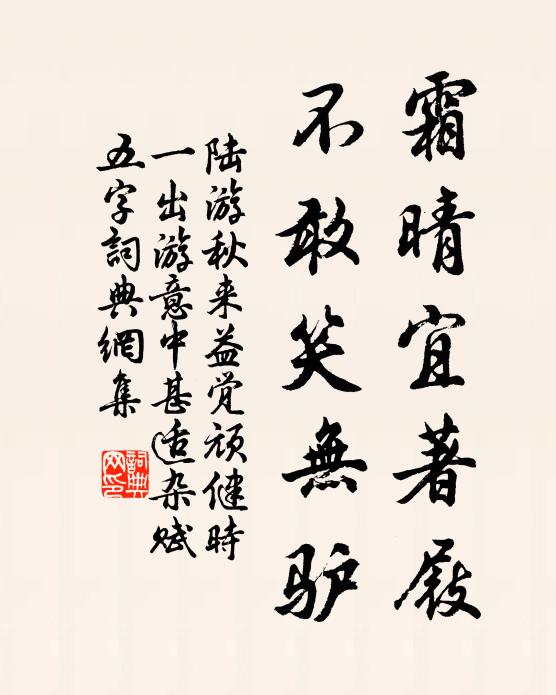 霜晴宜著屐
不敢笑無驴
陆游秋来益觉顽健時
一出游意中甚适杂赋
五字詞典網集
詞典网印